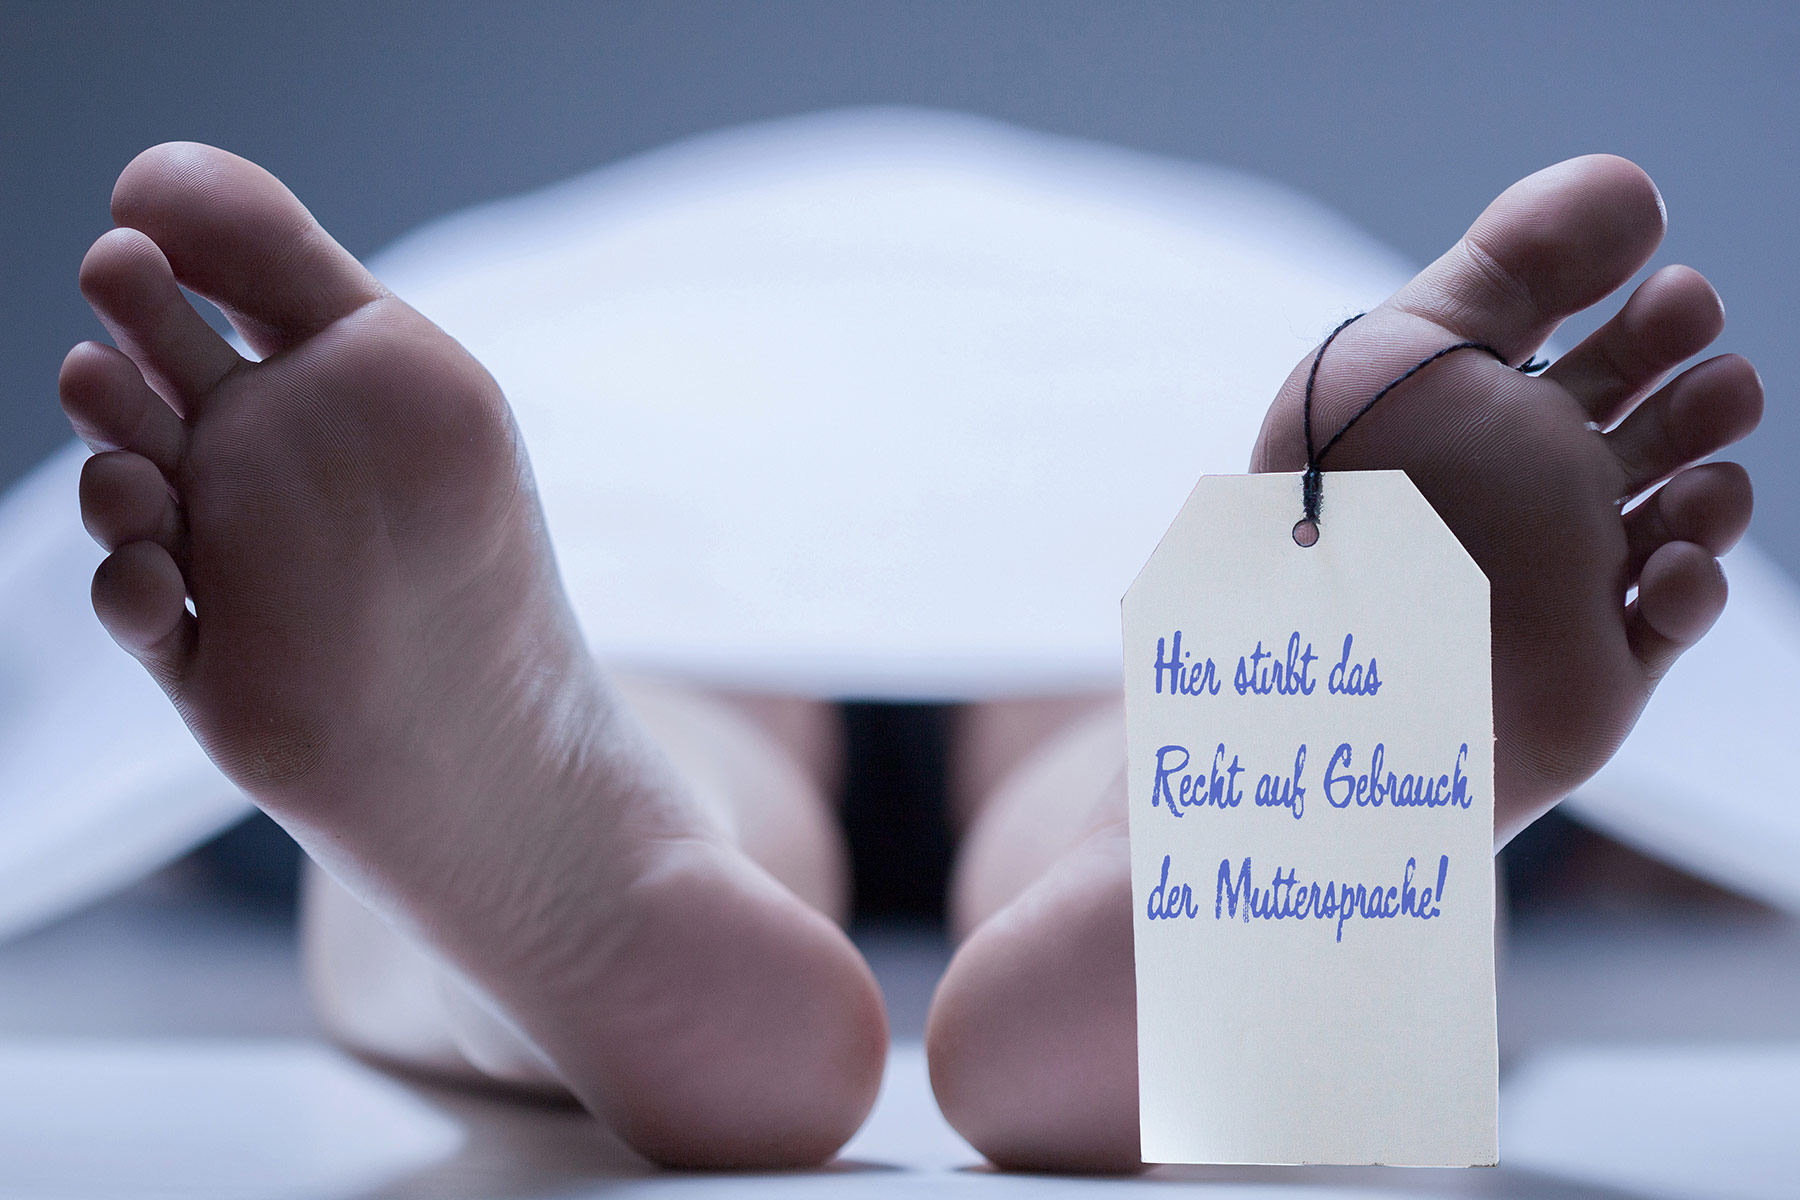 Hier stirbt das
Recht auf Gebrauch
der Muttersprache!